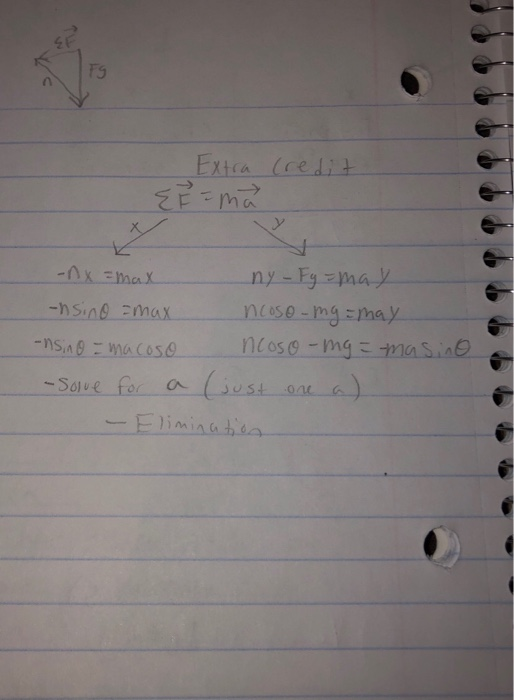 ΣF⃗
n
Fg
Extra Credit
ΣF⃗ = ma⃗
x
y
-nx = max
ny - Fg = may
-nsinθ = max
ncosθ - mg = may
-nsinθ = macosθ
ncosθ - mg = -masinθ
- Solve for a (just one a)
- Elimination